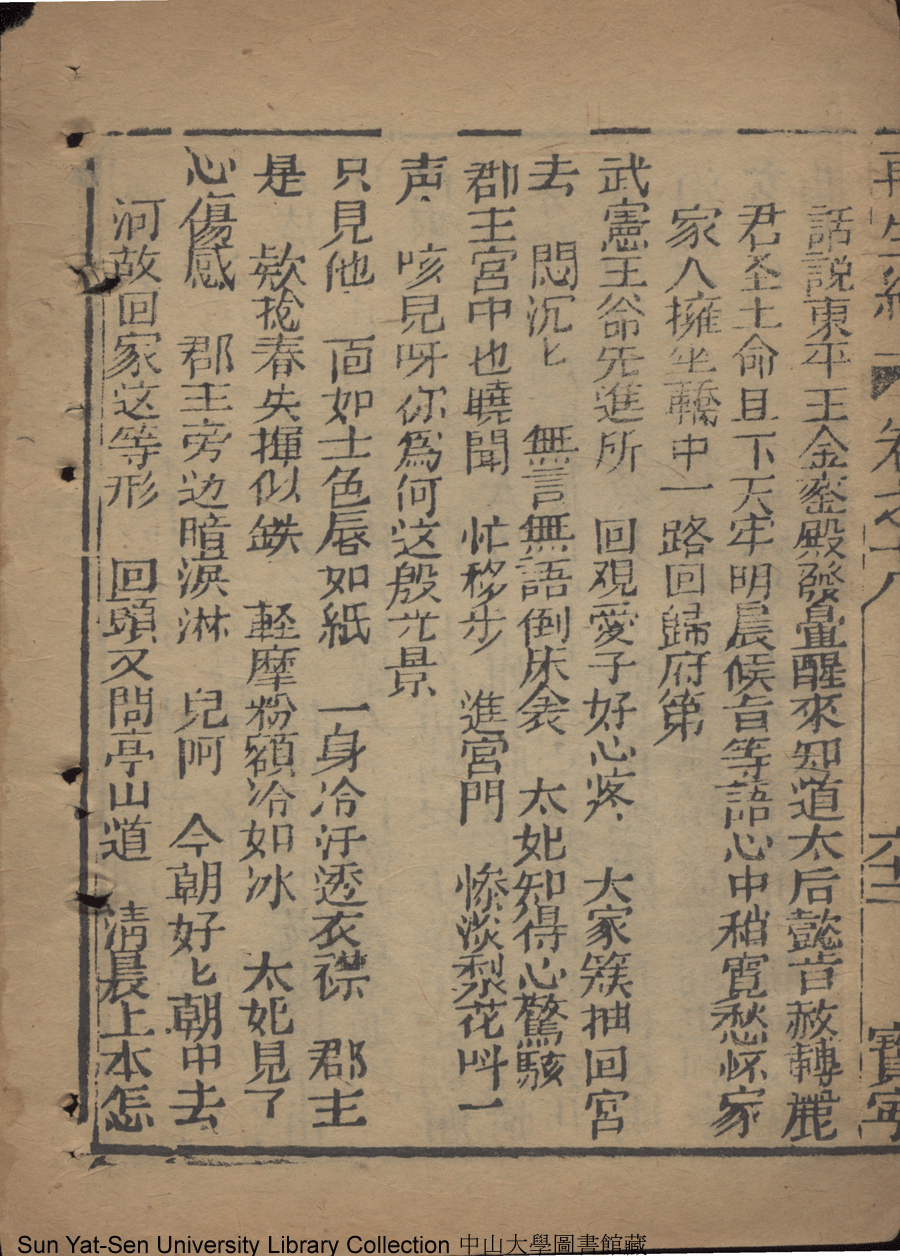 再生緣 卷之十八 六十一 寶寧
話説東平王金銮殿發暈醒來知道太后懿旨赦轉麗
君圣主命且下天牢明晨候旨等語心中稍寛愁怀家
家人擁坐轎中一路回歸府第
武憲王爺先進所 回观愛子好心疼 大家簇抽回宮
去 悶沉匕 無言無語倒床衾 太妃知得心驚駭
郡主宮中也曉聞 忙移步 進宮門 惨淡梨花叫一
声 咳兒呀你爲何这般光景
只見他 面如士色唇如紙 一身冷汗透衣襟 郡主
是 欵捻春失揮似鉄 軽摩粉額冷如冰 太妃見了
心傷感 郡主旁边暗淚淋 兒呵 今朝好匕朝中去
河故回家这等形 回頭又問亭山道 清晨上本怎
Sun Yat-Sen University Library Collection 中山大學圖書館藏